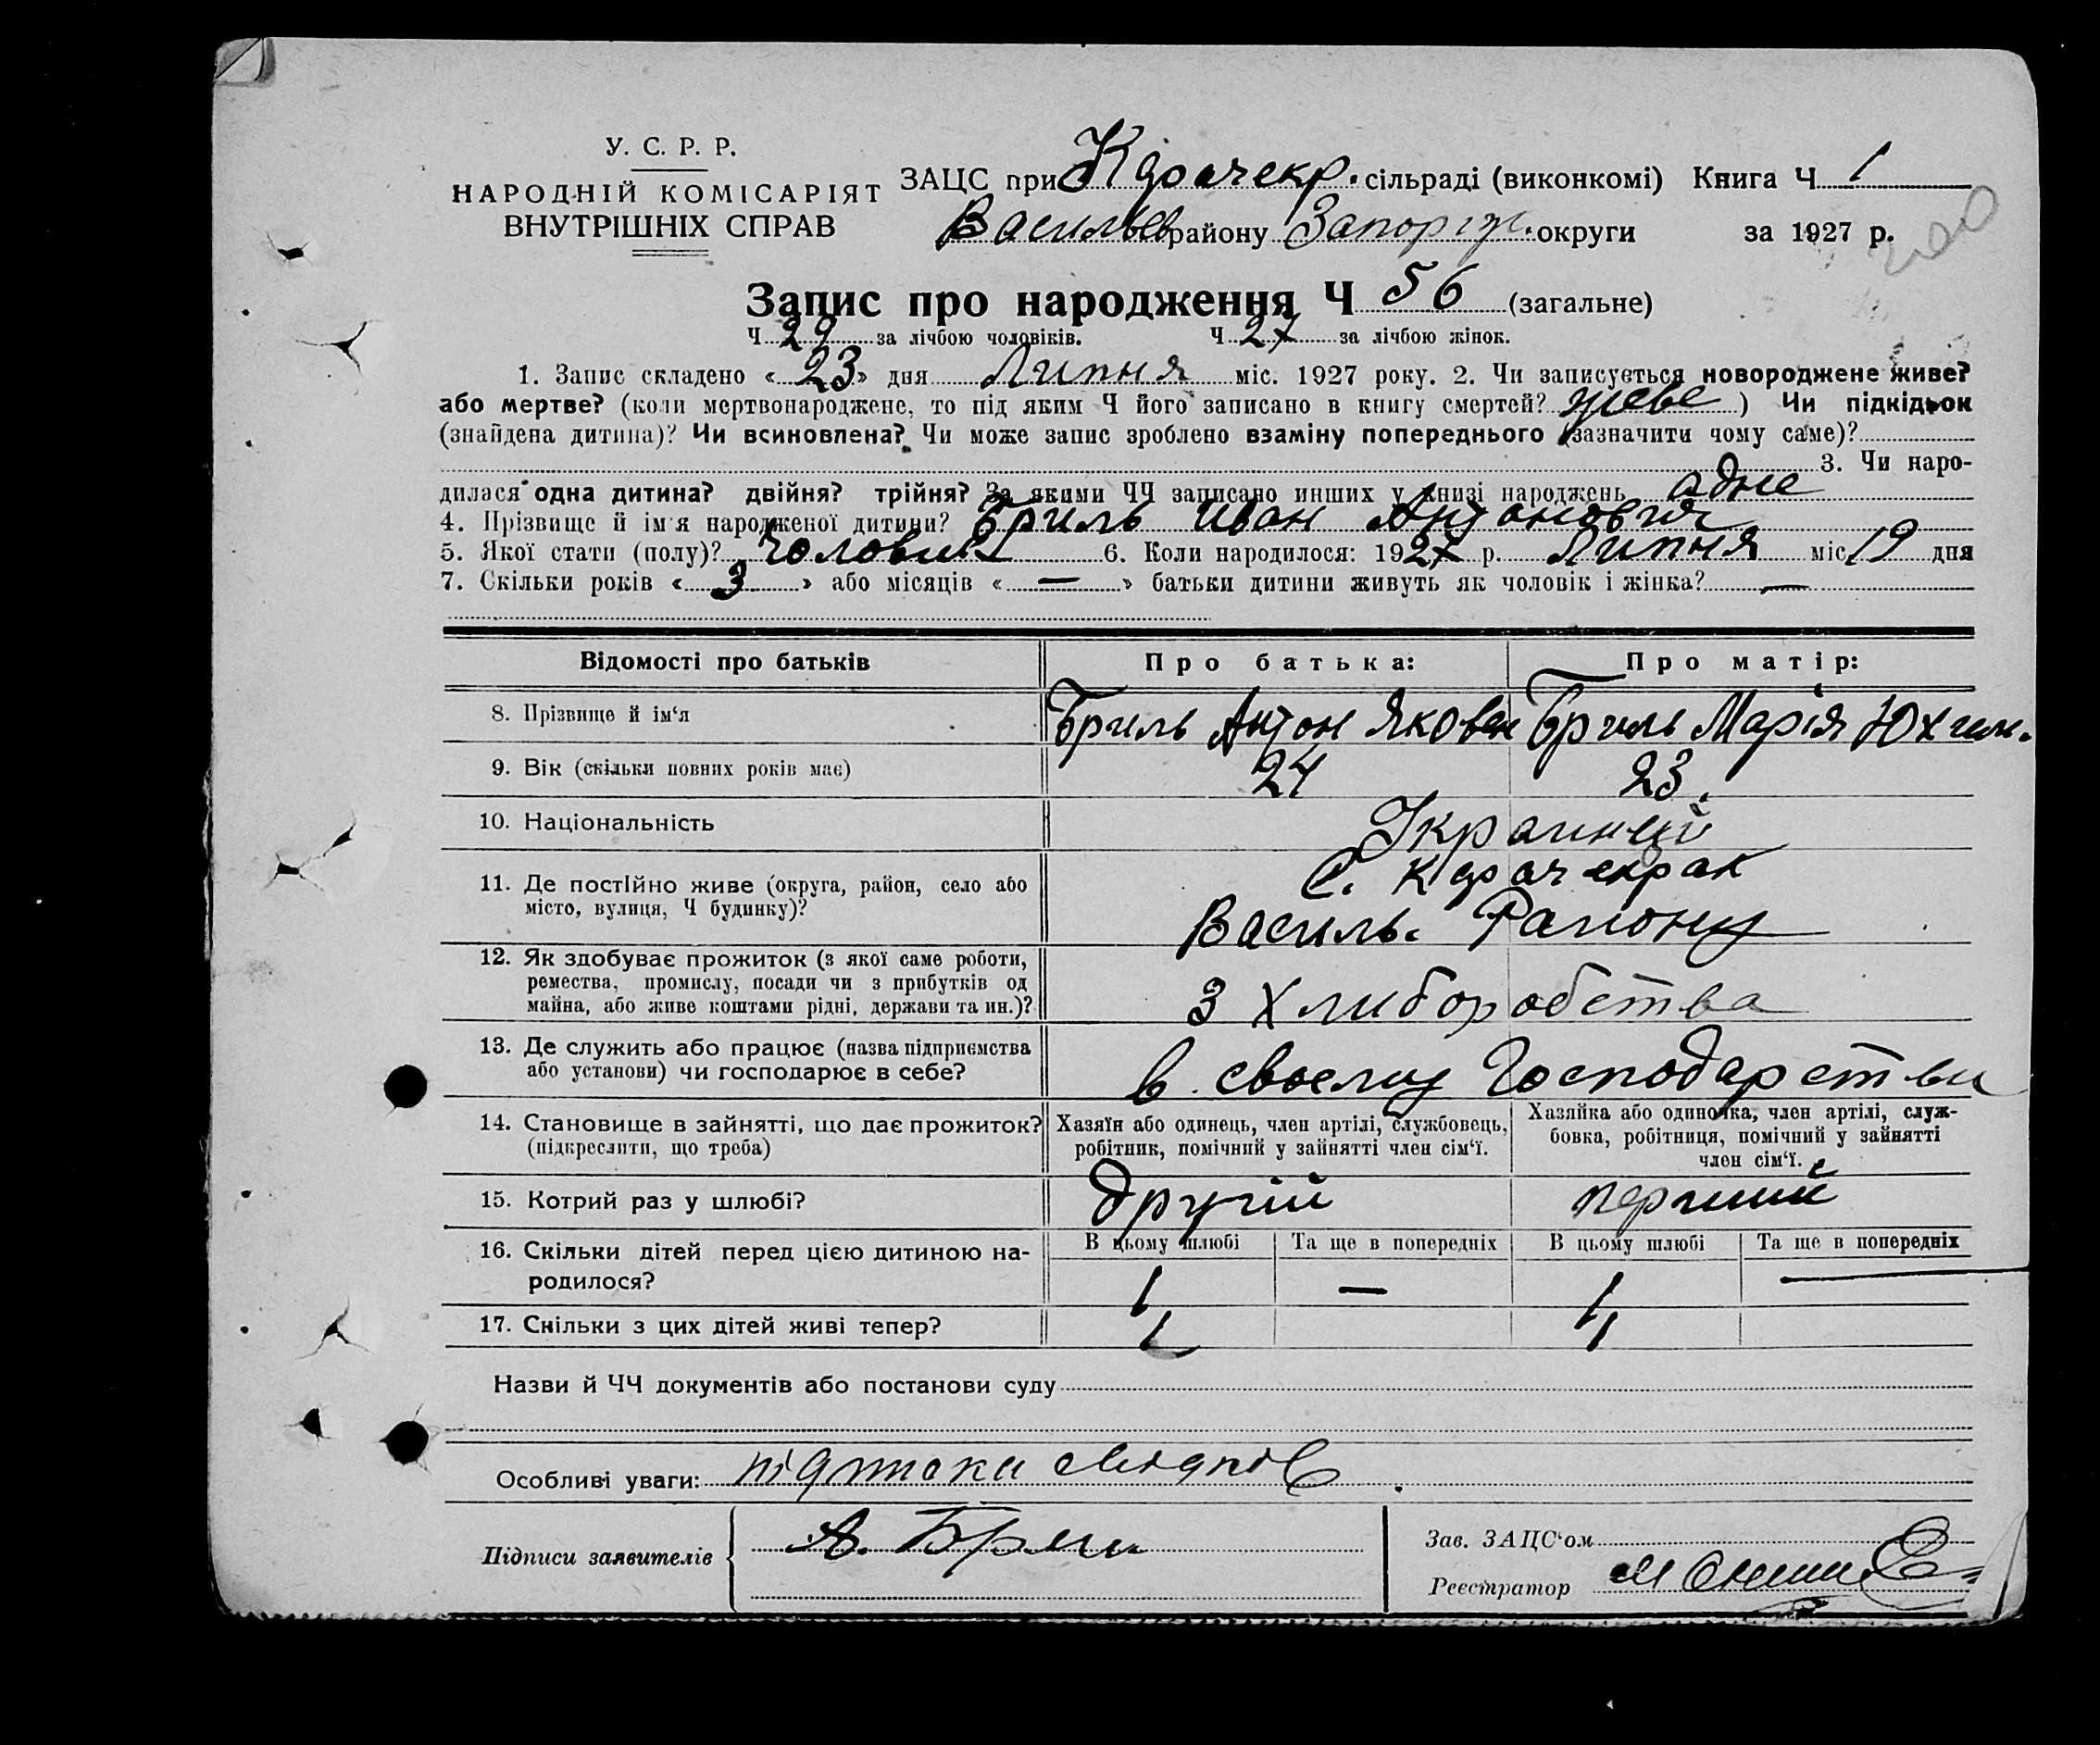 У. С. Р. Р.
НАРОДНІЙ КОМІСАРІЯТ
ВНУТРІШНІХ СПРАВ
ЗАЦС при Карачекр. сільраді (виконкомі) Книга Ч 1
Васильев району Запоріж. округи за 1927 р.
200
Запис про народження Ч 56 (загальне)
Ч 29 за лічбою чоловіків. Ч 27 за лічбою жінок.
1. Запис складено « 23 » дня Липня міс. 1927 року. 2. Чи записується новороджене живе?
або мертве? (коли мертвонароджене, то під яким Ч його записано в книгу смертей? живе ) Чи підкідьок
(знайдена дитина)? Чи всиновлена? Чи може запис зроблено взаміну попереднього (зазначити чому саме)?
3. Чи наро-
дилася одна дитина? двійня? трійня? За якими ЧЧ записано инших у книзі народжень одне
4. Прізвище й ім'я народженої дитини? Бриль Иван Антонович
5. Якої стати (полу)? Чоловичі 6. Коли народилося: 1927 р. Липня міс. 19 дня
7. Скільки років « 3 » або місяців « — » батьки дитини живуть як чоловік і жінка? —
Відомості про батьків Про батька: Про матір:
8. Прізвище й ім'я Бриль Антон Яковен Бриль Марія Юхим.
9. Вік (скільки повних років має) 24 23.
10. Національність
11. Де постійно живе (округа, район, село або
місто, вулиця, Ч будинку)?
С. Карачекрак
Василь. Района
12. Як здобуває прожиток (з якої саме роботи,
ремества, промислу, посади чи з прибутків од
майна, або живе коштами рідні, держави та ин.)?
З Хлиборобства
13. Де служить або працює (назва підприємства
або установи) чи господарює в себе?
в своему Господарстви
14. Становище в зайнятті, що дає прожиток?
(підкреслити, що треба)
Хазяїн або одинець, член артілі, службовець,
робітник, помічний у зайнятті член сім'ї.
Хазяйка або одиночка, член артілі, служ-
бовка, робітниця, помічний у зайнятті
член сім'ї.
15. Котрий раз у шлюбі? другій перший
16. Скільки дітей перед цією дитиною на-
родилося?
В цьому шлюбі Та ще в попередніх В цьому шлюбі Та ще в попередніх
1 — 1 —
17. Скільки з цих дітей живі тепер? 1 1
Назви й ЧЧ документів або постанови суду
Особливі уваги:
Підписи заявителів А. Бриль
Зав. ЗАЦС'ом
Реєстратор